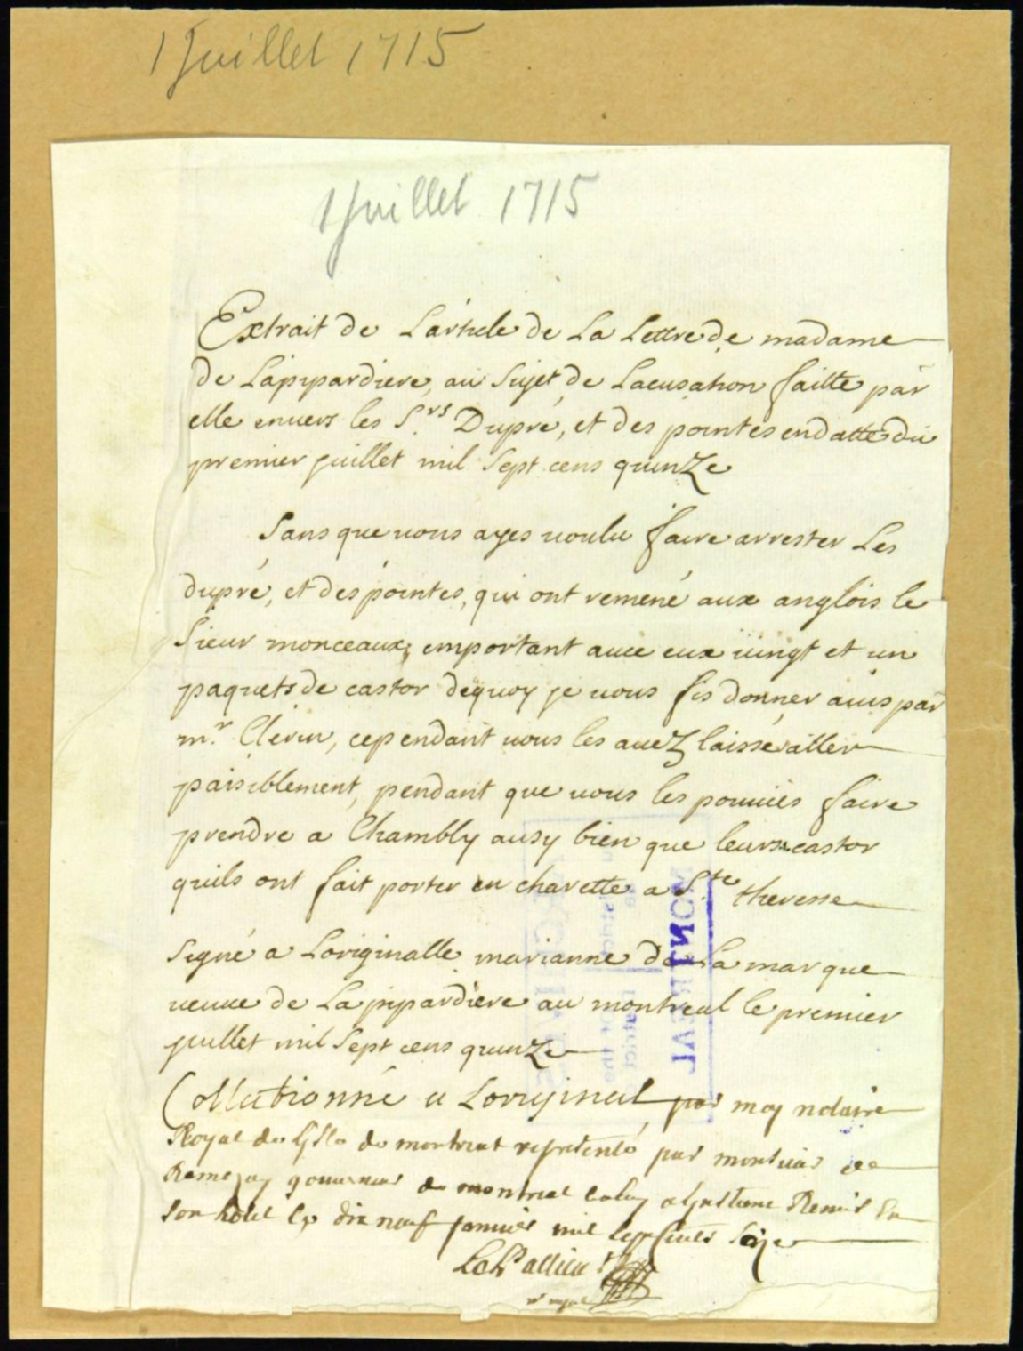 1 Juillet 1715
1 Juillet 1715
Extrait de Larticle de La Lettre de madame
de Lapipardiere, au Sujet de Lacusation faitte par
elle envers les S.rs Dupré, et des pointes endatte du
premier juillet mil Sept cens quinze
Sans que vous ayes voulu faire arrester Les
dupré, et des pointes, qui ont remené aux anglois le
Sieur monceaux, emportant avec eux vingt et un
paquets de castor dequoy je vous fis donner avis par
m.r Clerin, cependant vous les avez laissé aller
paisiblement, pendant que vous les pouviés faire
prendre a Chambly ausy bien que leurs castor
quils ont fait porter en charette a S.te theresse
Signé a Loriginalle marianne de La marque
veuve de Lapipardiere au montreal le premier
juillet mil Sept cens quinze
Collationné a Loriginal par moy notaire
Royal de de montreal representé par monsieur de
Ramezay gouverneur de montreal Remis
Son hotel dix neuf janvier mil Sept Seize
LePallieur
MONTREAL
ARCHIVES